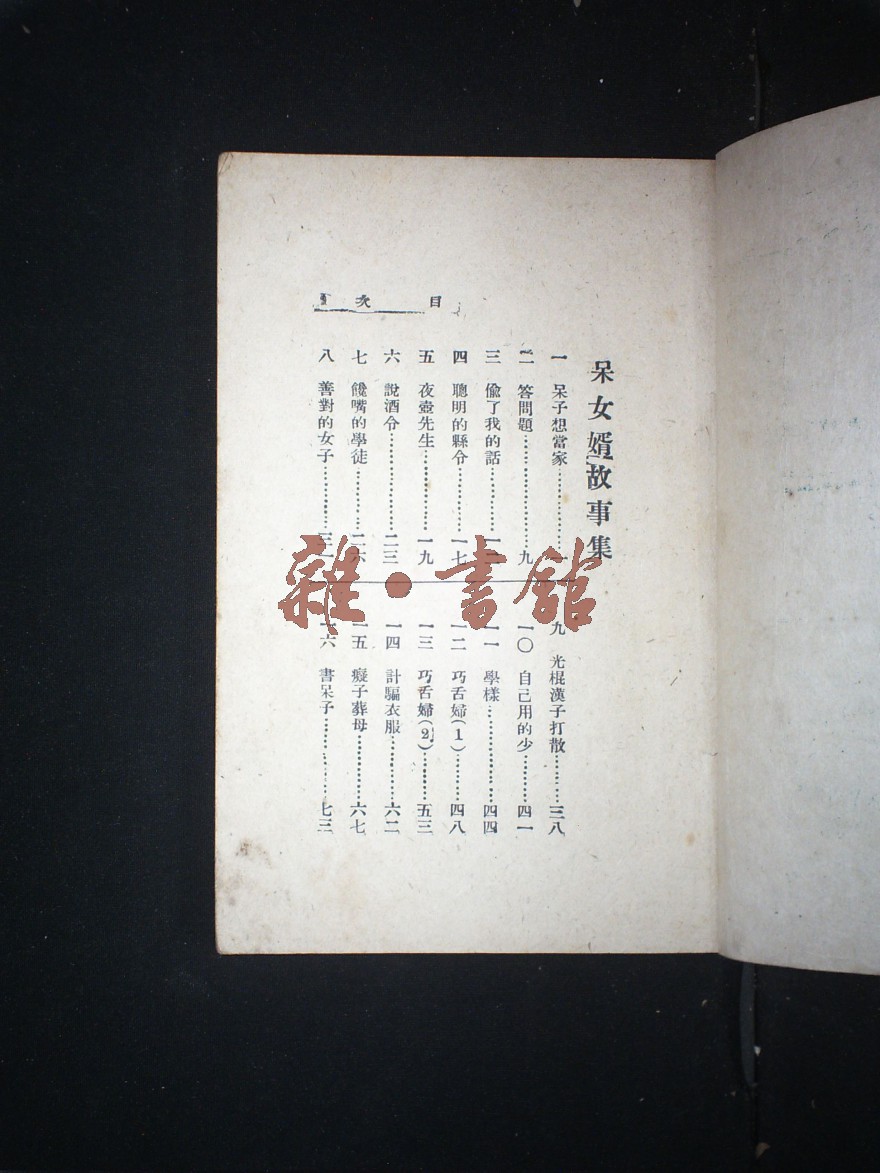 目次
呆女婿故事集
一 呆子想當家…………一
二 答問題…………九
三 偷了我的話…………一
四 聰明的縣令…………一七
五 夜壺先生…………一九
六 說酒令…………二三
七 饞嘴的學徒…………二六
八 善對的女子…………三一
九 光棍漢子打散…………三八
一〇 自己用的少…………四一
一一 學樣…………四四
一二 巧舌婦(1)…………四八
一三 巧舌婦(2)…………五三
一四 計騙衣服…………六二
一五 癡子葬母…………六七
一六 書呆子…………七三
雜·書館